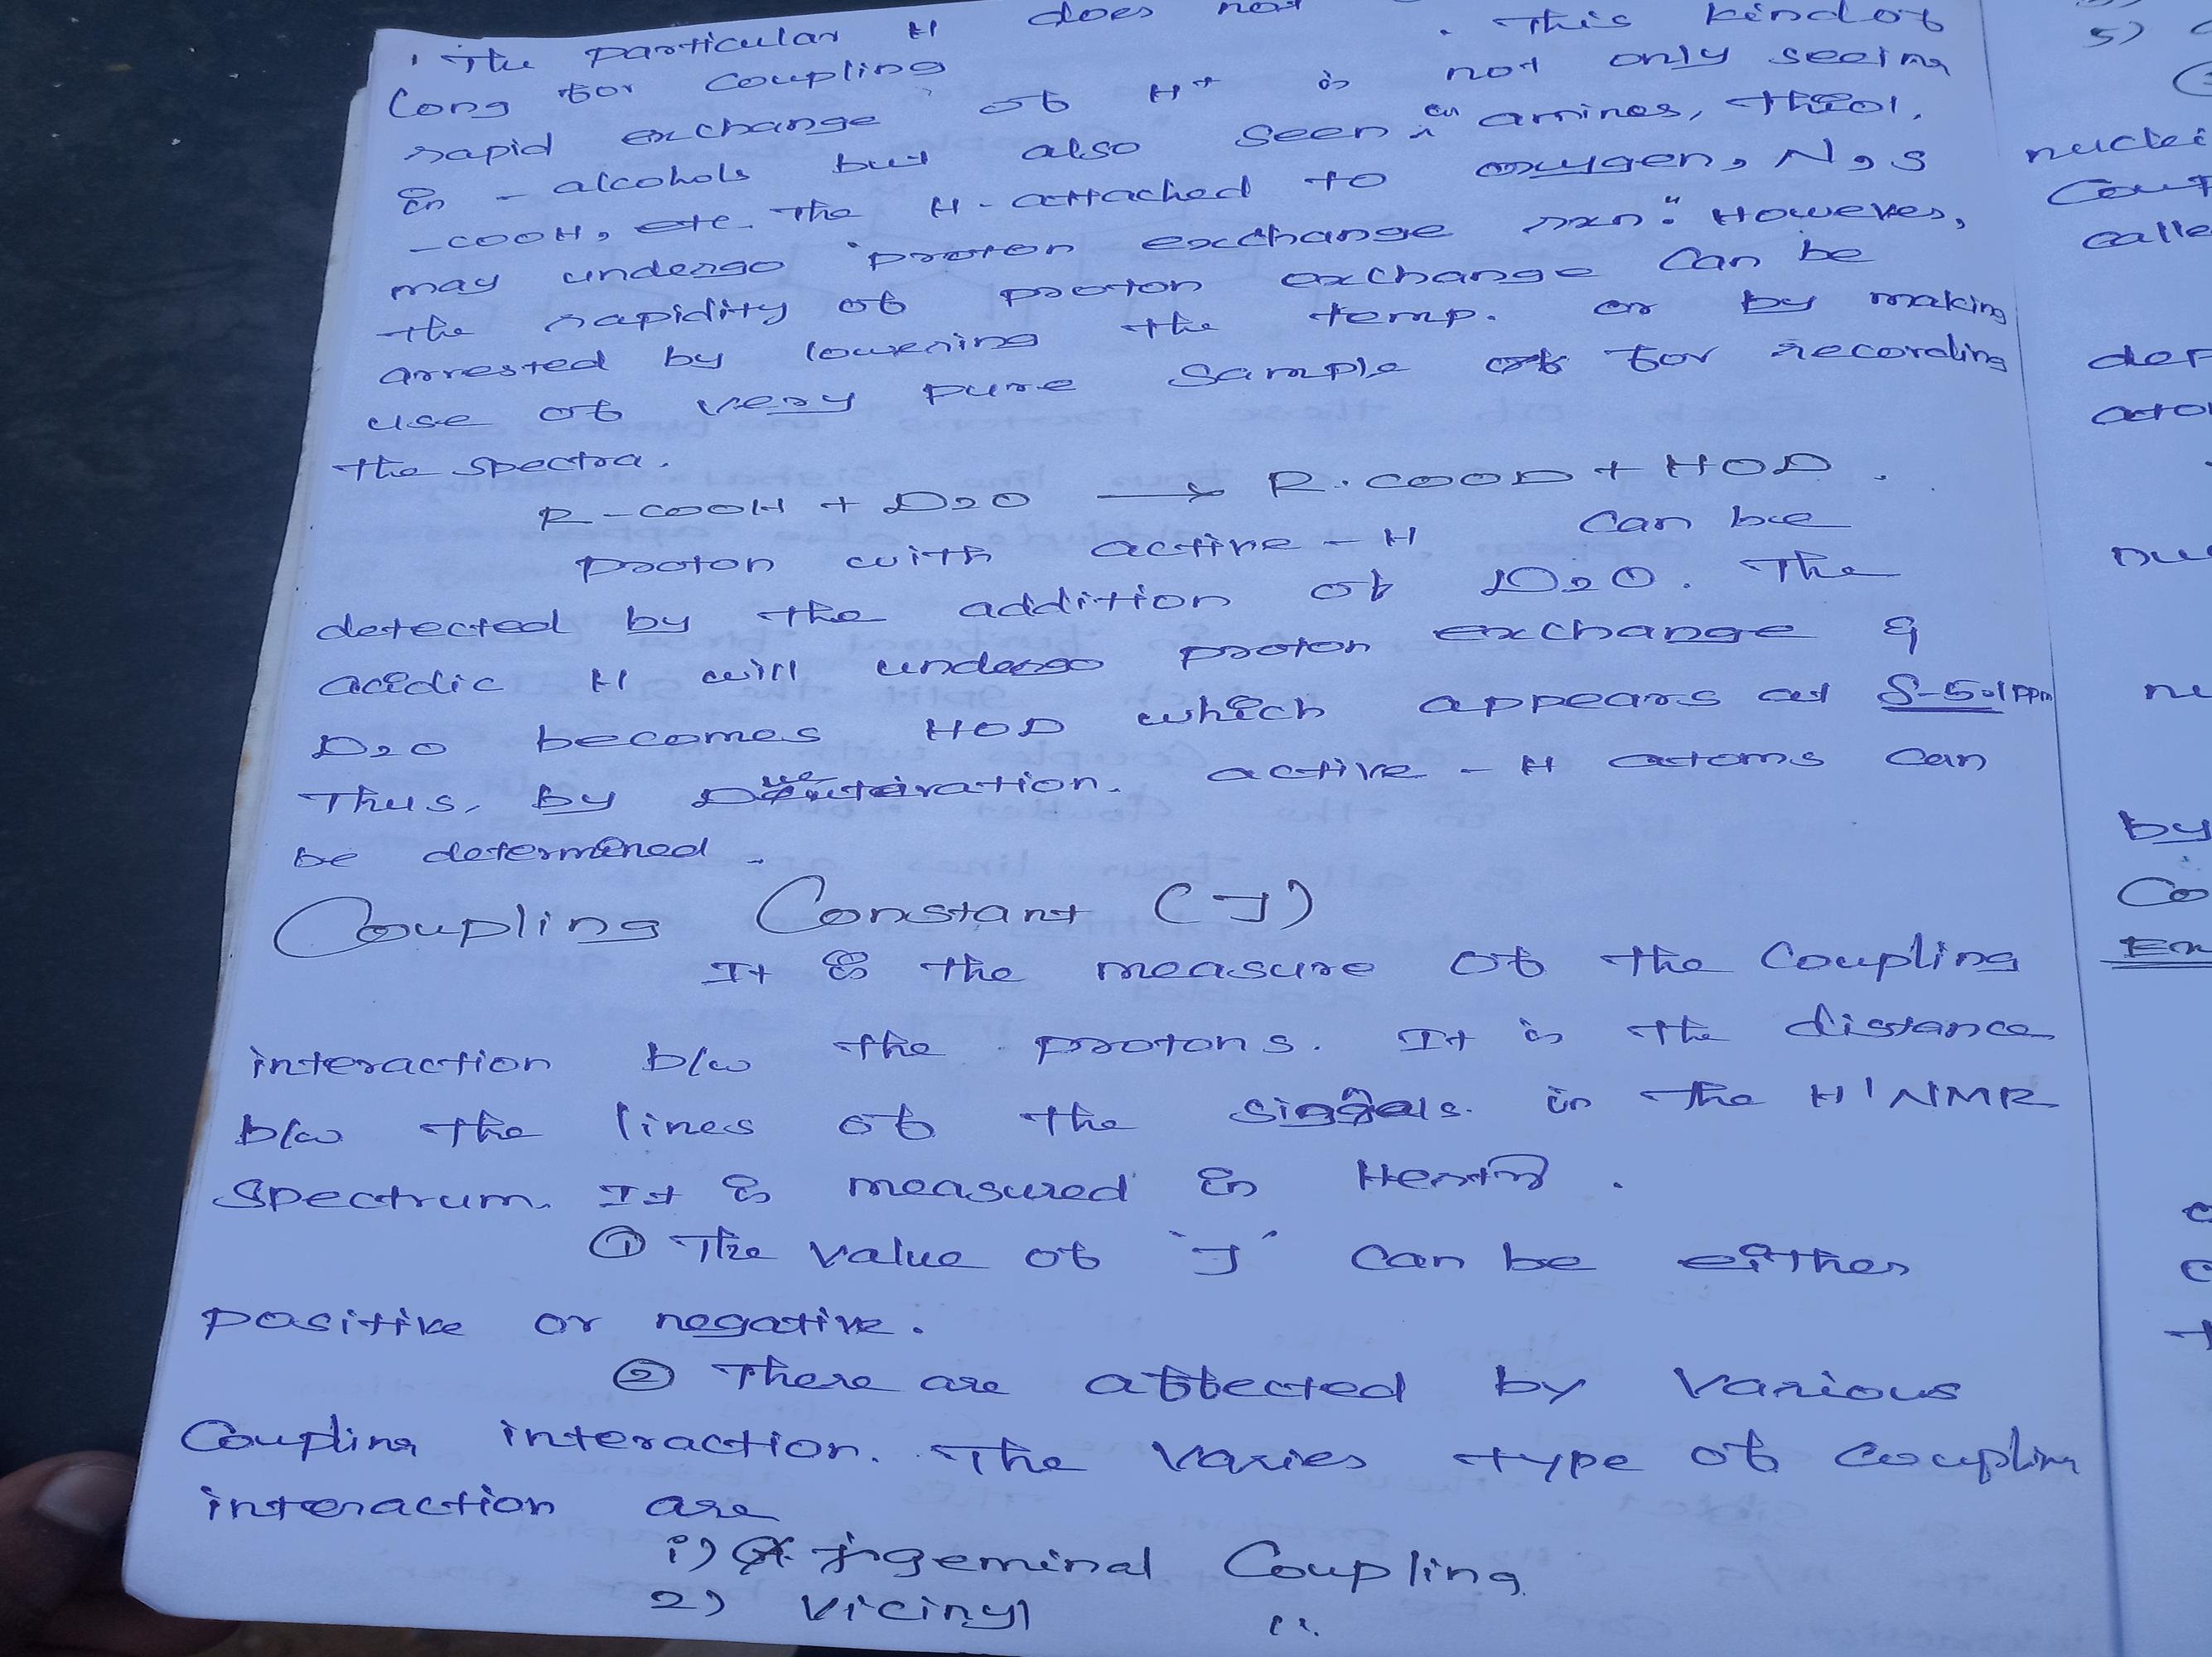 The particular H does not
long for coupling . This kind of
rapid exchange of H+ is not only seeing
in - alcohols but also seen in amines, thiol,
- COOH, etc. The H - attached to oxygen, N, S
may undergo "proton exchange rxn". However,
the rapidity of proton exchange can be
arrested by lowering the temp. or by making
use of very pure sample for recording
the spectra.
R-COOH + D2O → R.COOD + HOD.
proton with active - H can be
detected by the addition of D2O. The
acidic H will undergo proton exchange &
D2O becomes HOD which appears at δ-5.1ppm
Thus, by Deuteration. active - H atoms can
be determined.
Coupling Constant (J)
It is the measure of the coupling
interaction b/w the protons. It is the distance
b/w the lines of the signals. in the H1 NMR
Spectrum. It is measured in Hertz.
① The value of 'J' can be either
positive or negative.
② There are affected by various
Coupling interaction. The varies type of coupling
interaction are
i) geminal Coupling
2) Vicinyl ".
5)
nuclei
Coup
calle
def
ato
nu
by
Co